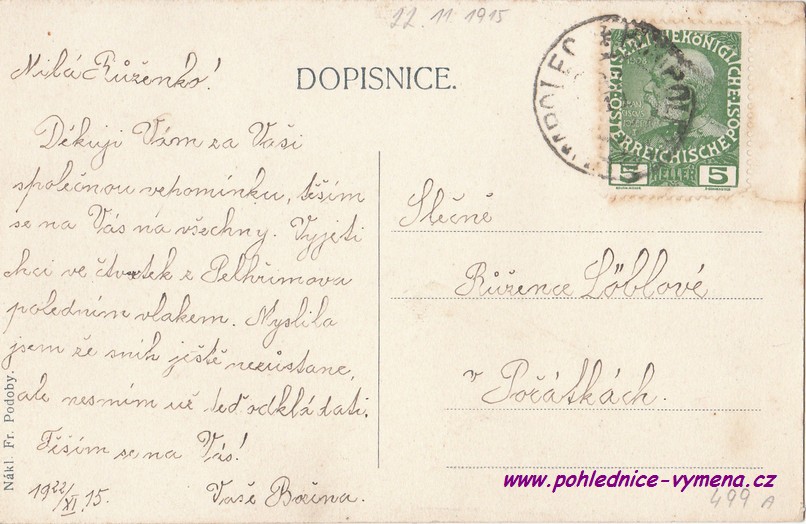 22. 11. 1915
DOPISNICE.
Milá Růženko!
Děkuji Vám za Vaši
společnou vzpomínku, těším
se na Vás na všechny. Vyjeti
chci ve čtvrtek z Pelhřimova
poledním vlakem. Myslila
jsem že sníh ještě nezůstane,
ale nesmím už teď odkládati.
Těším se na Vás!
19 22/XI 15. Vaše Božena.
Slečně
Růžence Löblové
v Počátkách.
Nákl. Fr. Podoby.
5 HELLER 5
www.pohlednice-vymena.cz
499 A